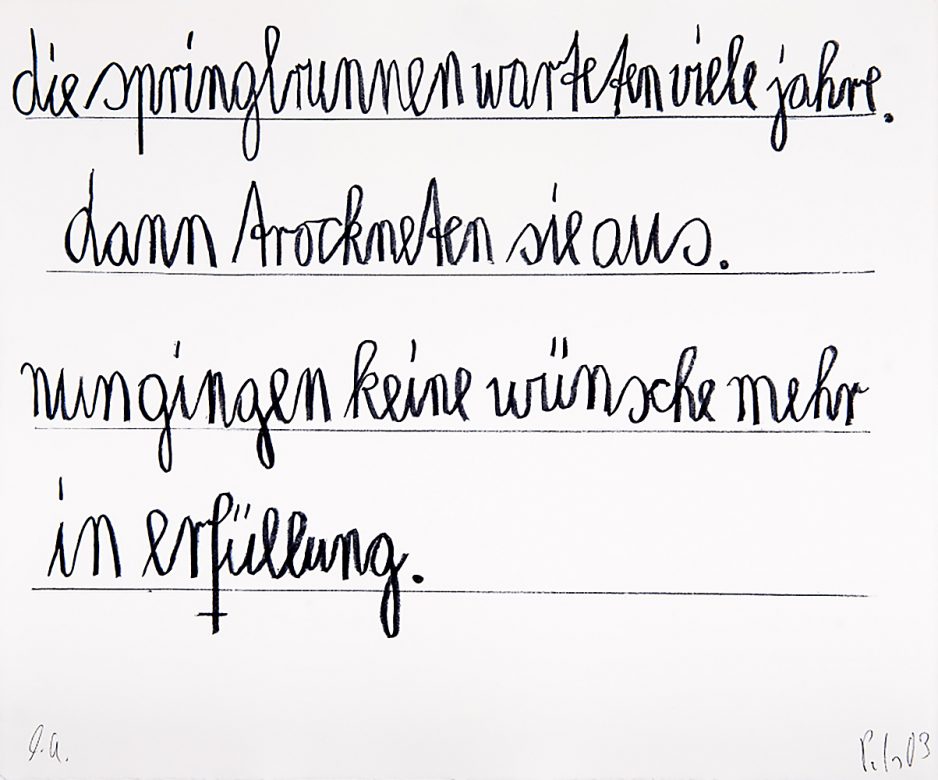 die springbrunnen warteten viele jahre.
dann trockneten sie aus.
nun gingen keine wünsche mehr
in erfüllung.
e.a.